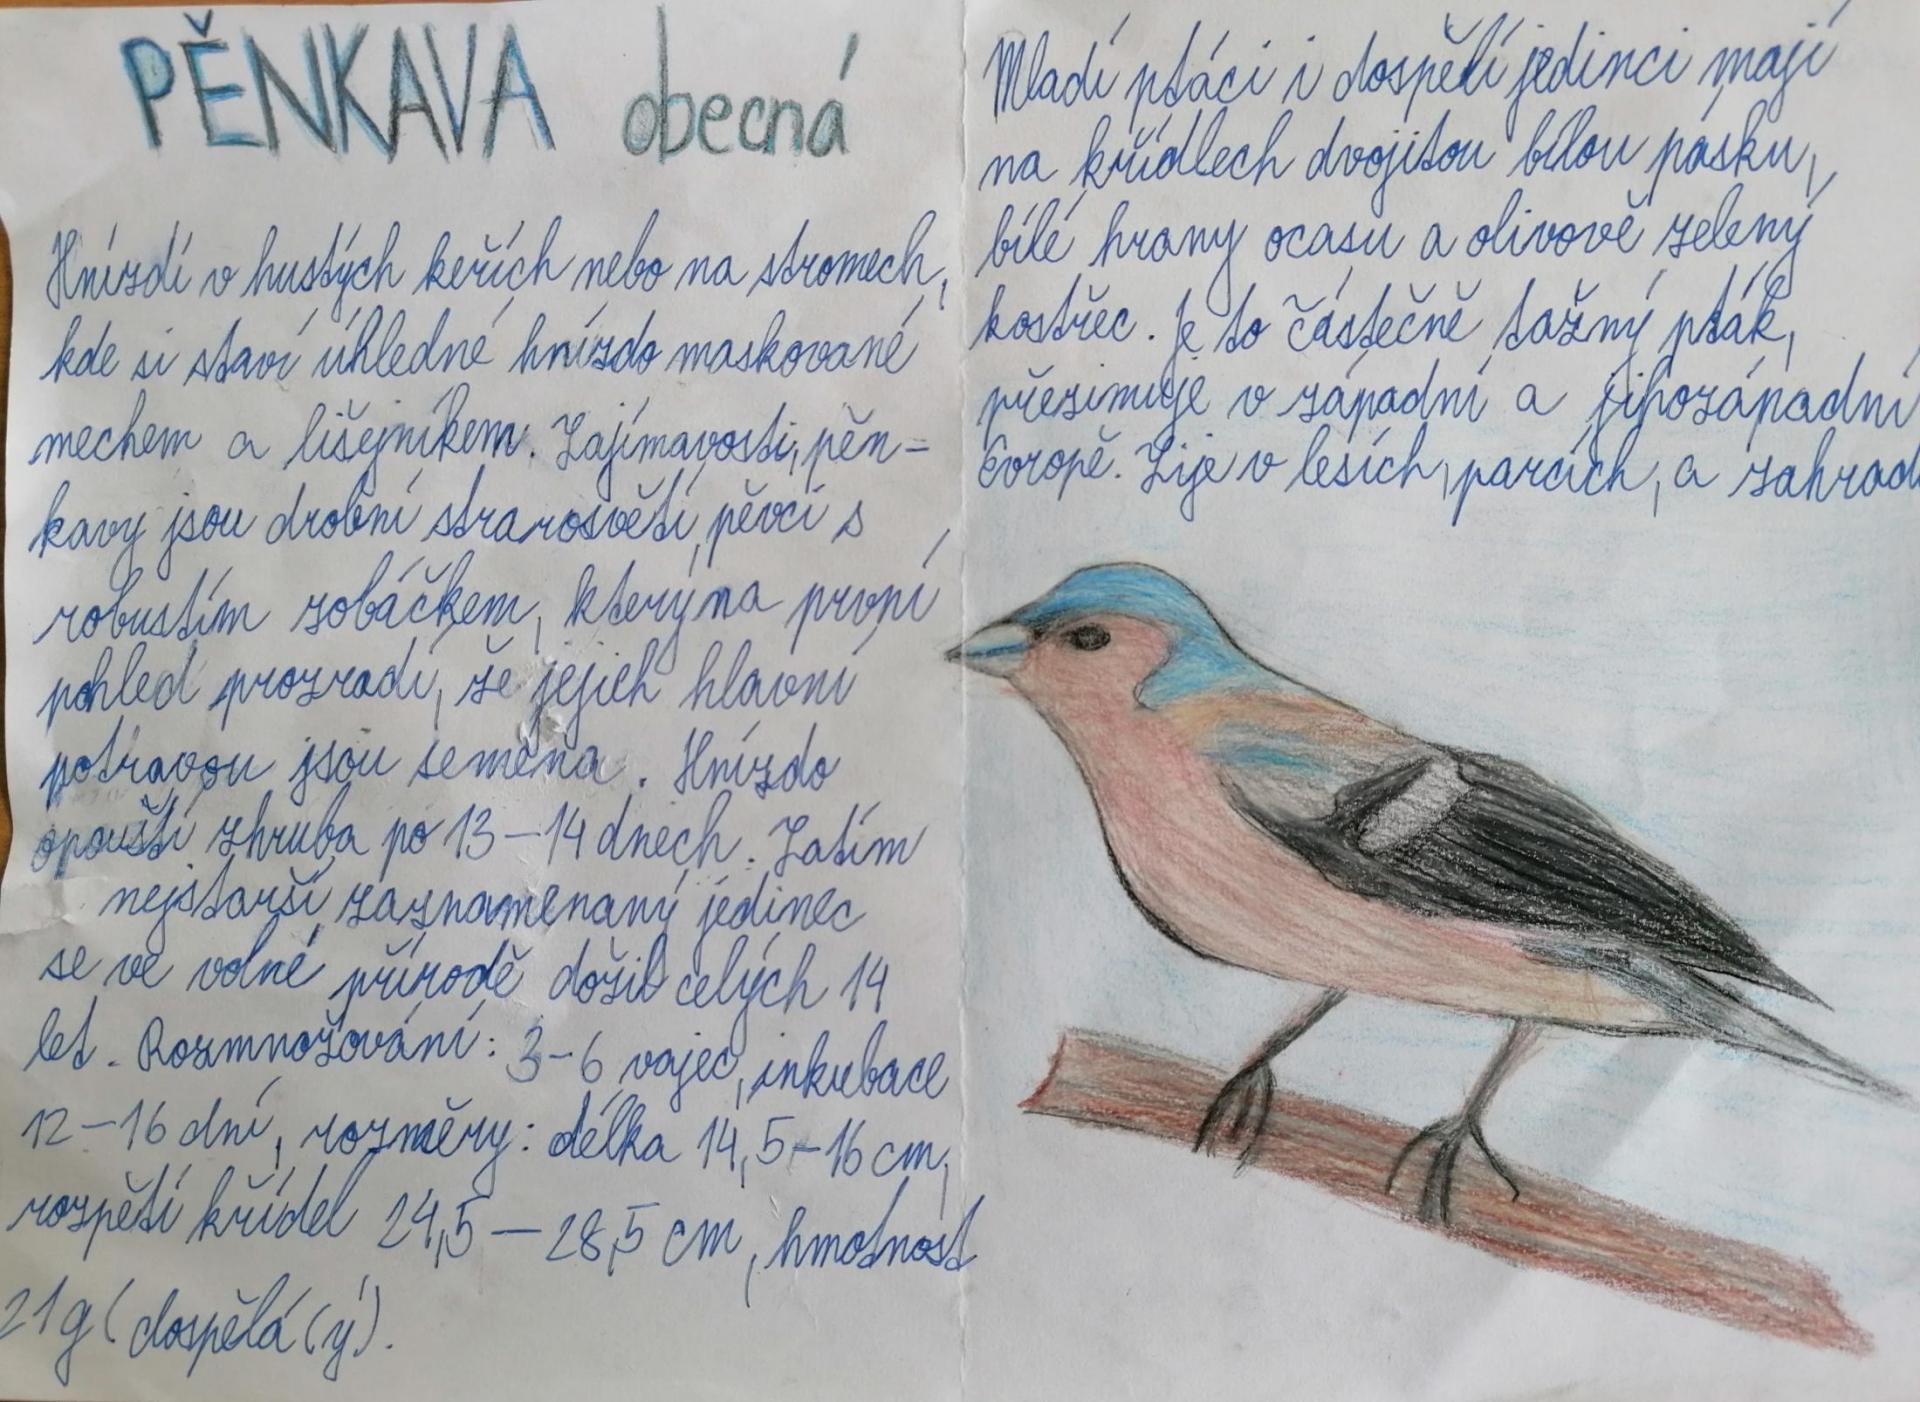 PĚNKAVA obecná
Hnízdí v hustých keřích nebo na stromech,
kde si staví úhledné hnízdo maskované
mechem a lišejníkem. Zajímavosti, pěn=
kavy jsou drobní strarosvětí pěvci s
robustím zobáčkem, který na první
pohled prozradí, že jejich hlavní
potravou jsou semena. Hnízdo
opouští zhruba po 13-14 dnech. Zatím
nejstarší zaznamenaný jedinec
se ve volné přírodě dožil celých 14
let. Rozmnožování: 3-6 vajec, inkubace
12-16 dní, rozměry: délka 14,5-16 cm,
rozpětí křídel 24,5-28,5 cm, hmotnost
21g (dospělá(ý).
Mladí ptáci i dospělí jedinci mají
na křídlech dvojitou bílou pásku,
bílé hrany ocasu a olivově zelený
kostřec. Je to částečně tažný pták,
přezimuje v západní a jihozápadní
Evropě. Žije v lesích, parcích, a zahrad